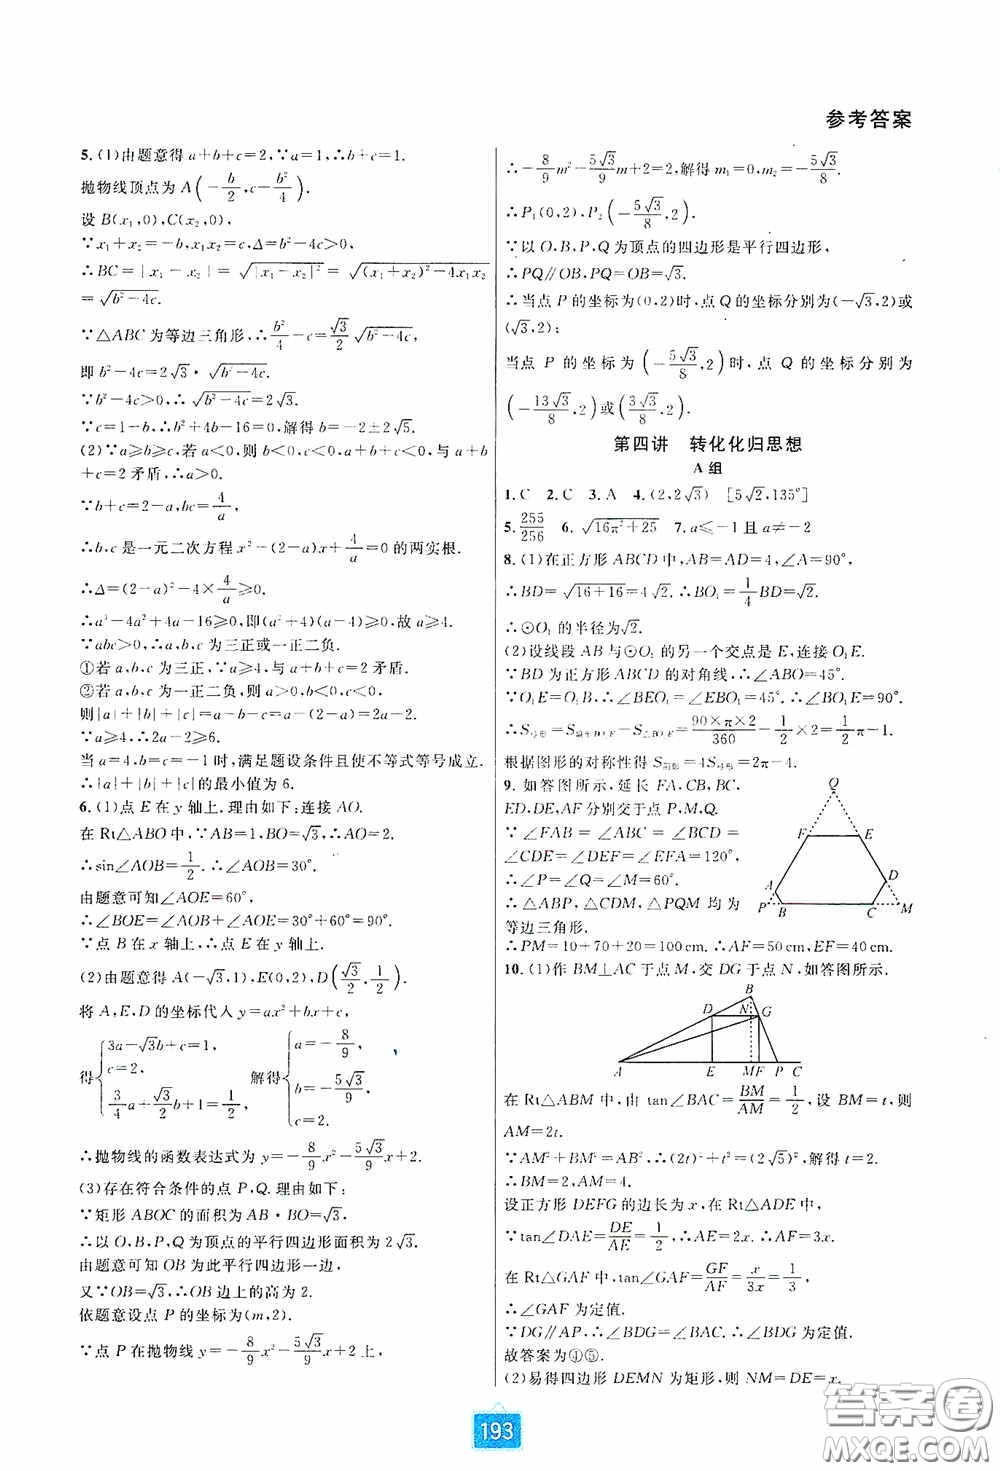 参考答案
5.(1)由题意得a+b+c=2,∵a=1,∴b+c=1.
抛物线顶点为A(-b/2,c-b²/4).
设B(x₁,0),C(x₂,0),
∵x₁+x₂=-b,x₁x₂=c,Δ=b²-4c>0,
∴BC=|x₁-x₂|=√|x₁-x₂|²=√(x₁+x₂)²-4x₁x₂
=√b²-4c.
∵△ABC为等边三角形,∴b²/4-c=√3/2√b²-4c,
即b²-4c=2√3·√b²-4c.
∵b²-4c>0,∴√b²-4c=2√3.
∵c=1-b,∴b²+4b-16=0,解得b=-2±2√5.
(2)∵a≥b≥c,若a<0,则b<0,c<0,a+b+c<0,与a+b
+c=2矛盾,∴a>0.
∵b+c=2-a,bc=4/a,
∴b,c是一元二次方程x²-(2-a)x+4/a=0的两实根.
∴Δ=(2-a)²-4×4/a≥0.
∴a³-4a²+4a-16≥0,即(a²+4)(a-4)≥0,故a≥4.
∵abc>0,∴a,b,c为三正或一正二负.
①若a,b,c为三正,∵a≥4,∴与a+b+c=2矛盾.
②若a,b,c为一正二负,则a>0,b<0,c<0,
则|a|+|b|+|c|=a-b-c=a-(2-a)=2a-2.
∵a≥4,∴2a-2≥6.
当a=4,b=c=-1时,满足题设条件且使不等式等号成立.
∴|a|+|b|+|c|的最小值为6.
6.(1)点E在y轴上.理由如下:连接AO.
在Rt△ABO中,∵AB=1,BO=√3,∴AO=2.
∴sin∠AOB=1/2.∴∠AOB=30°.
由题意可知∠AOE=60°,
∴∠BOE=∠AOB+∠AOE=30°+60°=90°.
∵点B在x轴上,∴点E在y轴上.
(2)由题意得A(-√3,1),E(0,2),D(√3/2,1/2).
将A,E,D的坐标代入y=ax²+bx+c,
得{3a-√3b+c=1, c=2, 3/4a+√3/2b+1=1/2, 解得{a=-8/9, b=-5√3/9, c=2.
∴抛物线的函数表达式为y=-8/9x²-5√3/9x+2.
(3)存在符合条件的点P,Q.理由如下:
∵矩形ABOC的面积为AB·BO=√3,
∴以O,B,P,Q为顶点的平行四边形面积为2√3.
由题意可知OB为此平行四边形一边,
又∵OB=√3,∴OB边上的高为2.
依题意设点P的坐标为(m,2).
∵点P在抛物线y=-8/9x²-5√3/9x+2上,
∴-8/9m²-5√3/9m+2=2,解得m₁=0,m₂=-5√3/8.
∴P₁(0,2),P₂(-5√3/8,2).
∵以O,B,P,Q为顶点的四边形是平行四边形,
∴PQ∥OB,PQ=OB=√3.
∴当点P的坐标为(0,2)时,点Q的坐标分别为(-√3,2)或
(√3,2);
当点P的坐标为(-5√3/8,2)时,点Q的坐标分别为
(-13√3/8,2)或(3√3/8,2).
第四讲 转化化归思想
A组
1.C 2.C 3.A 4.(2,2√3) [5√2,135°]
5.255/256 6.√16π²+25 7.a≤-1且a≠-2
8.(1)在正方形ABCD中,AB=AD=4,∠A=90°,
∴BD=√16+16=4√2.∴BO₁=1/4BD=√2.
∴⊙O₁的半径为√2.
(2)设线段AB与⊙O₁的另一个交点是E,连接O₁E.
∵BD为正方形ABCD的对角线,∴∠ABO=45°.
∵O₁E=O₁B,∴∠BEO₁=∠EBO₁=45°.∴∠BO₁E=90°.
∴S弓形=S扇形BO₁E-S△BO₁E=90×π×2/360-1/2×2=1/2π-1.
根据图形的对称性得S阴影=4S弓形=2π-4.
9.如答图所示,延长FA,CB,BC,
ED,DE,AF分别交于点P,M,Q.
∵∠FAB=∠ABC=∠BCD=
∠CDE=∠DEF=∠EFA=120°,
∴∠P=∠Q=∠M=60°.
∴△ABP,△CDM,△PQM均为
等边三角形.
∴PM=10+70+20=100cm.∴AF=50cm,EF=40cm.
Q
F
E
A
D
P
B
C
M
10.(1)作BM⊥AC于点M,交DG于点N,如答图所示.
B
D
N
G
A
E
M
F
P
C
在Rt△ABM中,由tan∠BAC=BM/AM=1/2,设BM=t,则
AM=2t.
∵AM²+BM²=AB²,∴(2t)²+t²=(2√5)²,解得t=2.
∴BM=2,AM=4.
设正方形DEFG的边长为x,在Rt△ADE中,
∵tan∠DAE=DE/AE=1/2,∴AE=2x.∴AF=3x.
在Rt△GAF中,tan∠GAF=GF/AF=x/3x=1/3,
∴∠GAF为定值.
∵DG∥AP,∴∠BDG=∠BAC.∴∠BDG为定值.
故答案为④⑤.
(2)易得四边形DEMN为矩形,则NM=DE=x.
193
答案圈
MXQE.COM